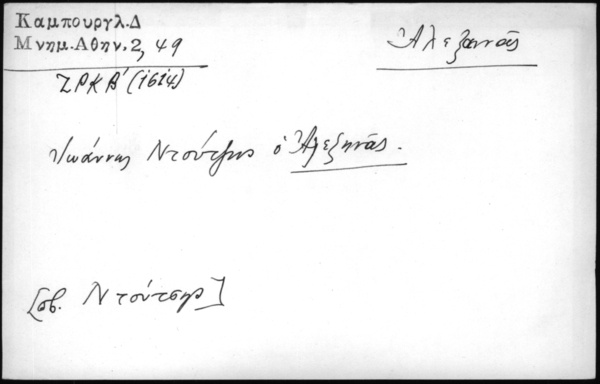 Καμπουργλ.Δ
Μνημ.Αθην.2, 49
Ἀλεξανᾶς
ΖΡΚΒ' (1614)
Ἰωάννης Ντούτσης ὁ Ἀλεξηνᾶς.
[σβ. Ντούτσης]